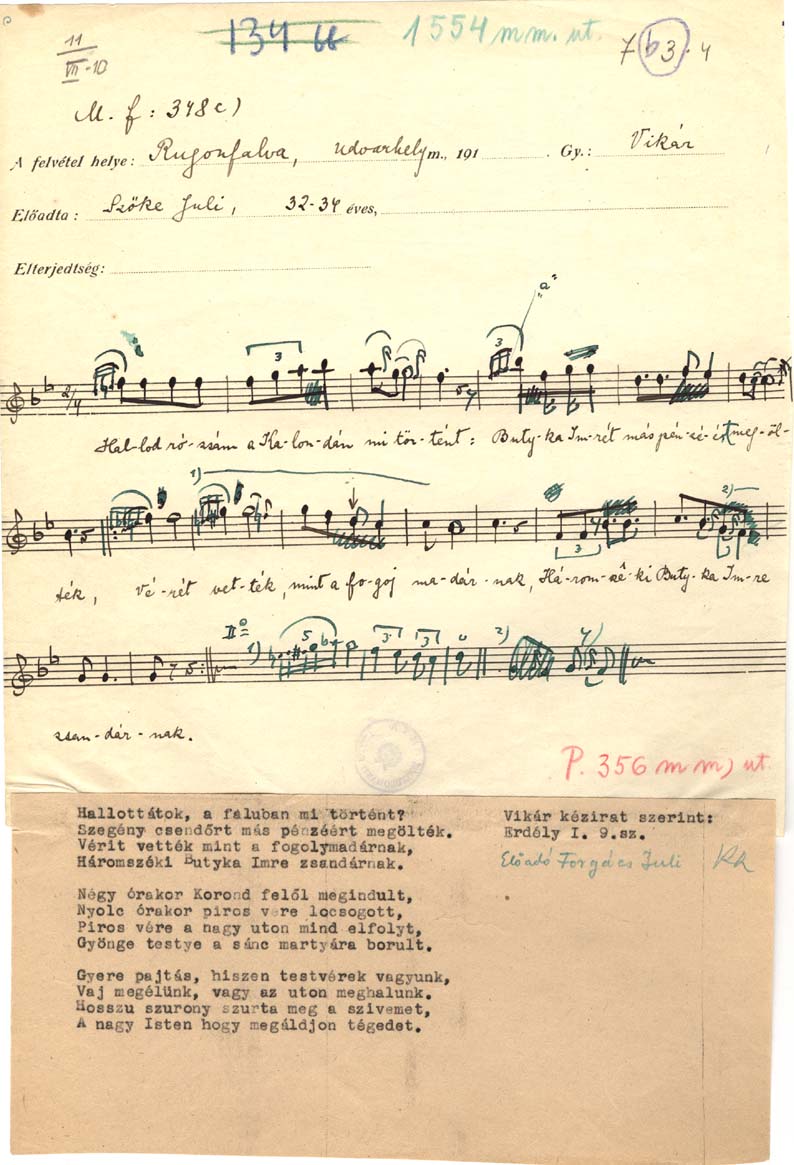 11
VII-10
134
1554 m m. ut.
7 b 3. 4
M. f: 348 c)
A felvétel helye: Rugonfalva, Udvarhely m., 191 . Gy.: Vikár
Előadta: Szőke Juli, 32-34 éves,
Elterjedtség:
"a"
3 3
2/4
Hal-lod ró-zsám a Ka-lon-dán mi tör-tént: Buty-ka Im-rét más pén-zé-ért meg-öl-
1) 2)
3
ték, Vé-rét vet-ték, mint a fo-goj ma-dár-nak, Há-rom-szê-ki Buty-ka Im-re
IIº 1) 5 3 3 2)
zsan-dár-nak.
P. 356 m m) ut.
Hallottátok, a faluban mi történt?
Szegény csendőrt más pénzéért megölték.
Vérit vették mint a fogolymadárnak,
Háromszéki Butyka Imre zsandárnak.
Négy órakor Korond felől megindult,
Nyolc órakor piros vére locsogott,
Piros vére a nagy uton mind elfolyt,
Gyönge testye a sánc martyára borult.
Gyere pajtás, hiszen testvérek vagyunk,
Vaj megélünk, vagy az uton meghalunk.
Hosszu szurony szurta meg a szivemet,
A nagy Isten hogy megáldjon tégedet.
Vikár kézirat szerint:
Erdély I. 9.sz.
Előadó Forgács Juli